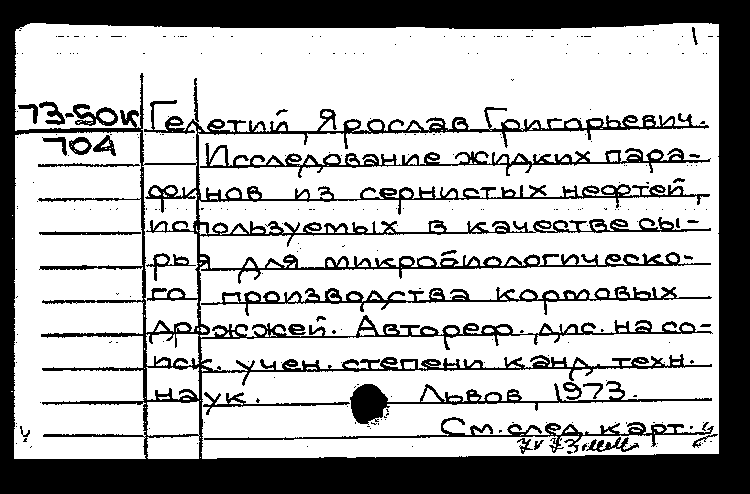 1
73-50к Гелетий, Ярослав Григорьевич.
704 Исследование жидких пара-
финов из сернистых нефтей,
используемых в качестве сы-
рья для микробиологическо-
го производства кормовых
дрожжей. Автореф. дис. на со-
иск. учен. степени канд. техн.
наук. Львов, 1973.
См. след. карт.